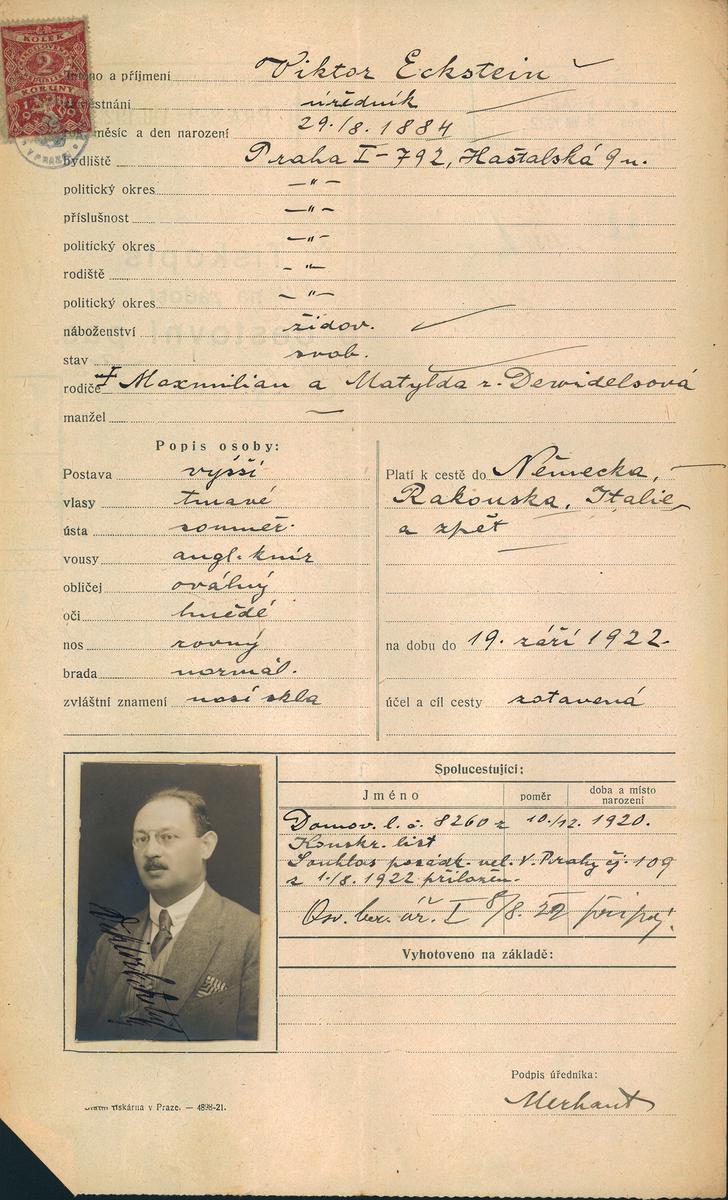 KOLEK
2
KORUNY
Jméno a příjmení Viktor Eckstein
zaměstnání úředník
rok, měsíc a den narození 29./8. 1884
bydliště Praha I-792, Haštalská 9 n.
politický okres —"—
příslušnost —"—
politický okres —"—
rodiště —"—
politický okres —"—
náboženství židov.
stav svob.
rodiče † Maxmilian a Matylda r. Dewidelsová
manžel —
Popis osoby:
Postava vyšší
vlasy tmavé
ústa souměr.
vousy angl. knír
obličej oválný
oči hnědé
nos rovný
brada normál.
zvláštní znamení nosí skla
Platí k cestě do Německa,
Rakouska, Italie
a zpět
na dobu do 19. září 1922.
účel a cíl cesty zotavená
Spolucestující:
Jméno poměr doba a místo narození
Domov. l. č. 8260 z 10./12. 1920.
Konskr. list
Souhlas posádk. vel. V. Prahy čj. 109
z 1./8. 1922 přiložen.
Osv. ber. úř. I 8/8. 22 připoj.
Vyhotoveno na základě:
Podpis úředníka:
Merhaut
Státní tiskárna v Praze. — 4898-21.